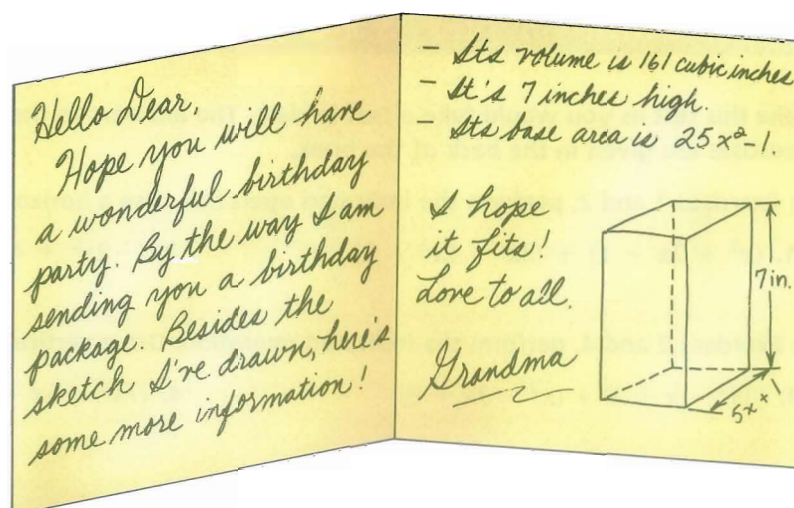 Hello Dear,
Hope you will have
a wonderful birthday
party. By the way I am
sending you a birthday
package. Besides the
sketch I've drawn, here's
some more information!
- Its volume is 161 cubic inches
- It's 7 inches high.
- Its base area is 25x²-1.
I hope
it fits!
Love to all.
Grandma
7 in.
5x+1